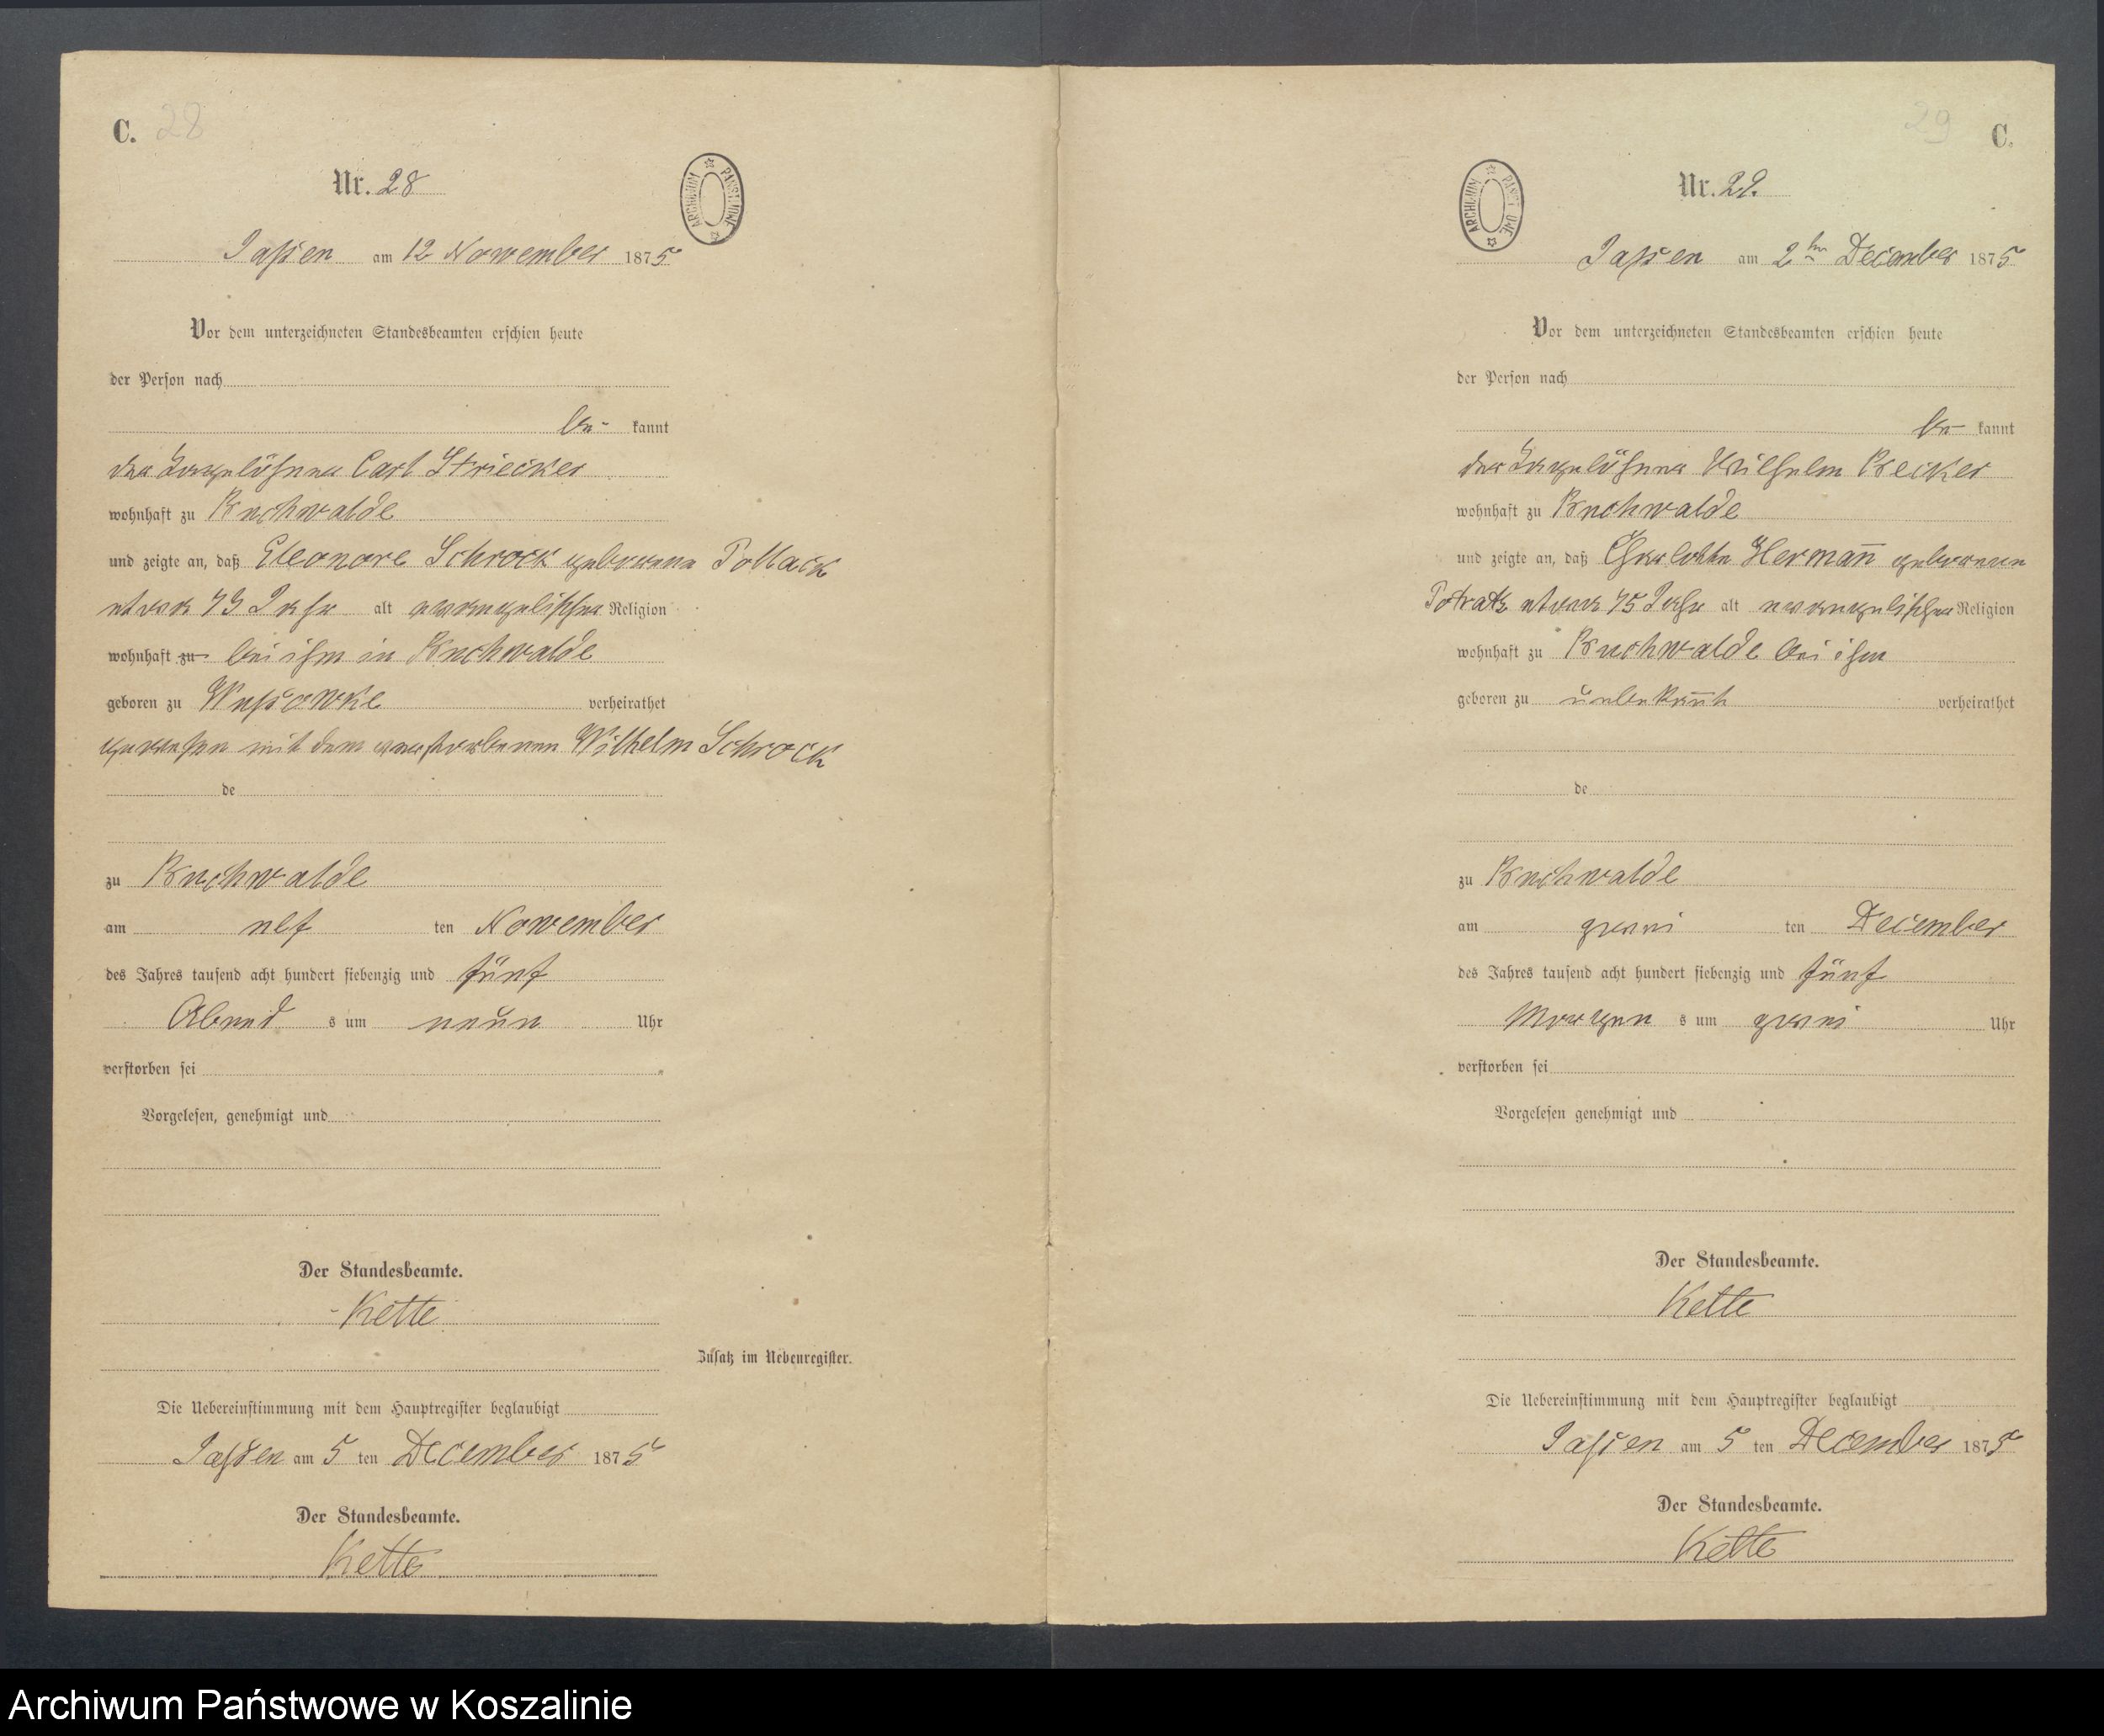 C. 28
Nr. 28
ARCHIWUM PAŃSTWOWE
Jassen am 12 November 1875
Vor dem unterzeichneten Standesbeamten erschien heute
der Person nach
be- kannt
der Tagelöhner Carl Striecker
wohnhaft zu Buchwalde
und zeigte an, daß Eleonore Schrock geborene Pollack
etwa 73 Jahr alt evangelischer Religion
wohnhaft zu bei ihm in Buchwalde
geboren zu Wussowke verheirathet
gewesen mit dem verstorbenen Wilhelm Schrock
de
zu Buchwalde
am elf ten November
des Jahres tausend acht hundert siebenzig und fünf
Abend s um neun Uhr
verstorben sei
Vorgelesen, genehmigt und
Der Standesbeamte.
Kette
Zusatz im Nebenregister.
Die Uebereinstimmung mit dem Hauptregister beglaubigt
Jassen am 5 ten December 1875
Der Standesbeamte.
Kette
29 C.
Nr. 29.
ARCHIWUM PAŃSTWOWE
Jassen am 2ten December 1875
Vor dem unterzeichneten Standesbeamten erschien heute
der Person nach
be- kannt
der Tagelöhner Wilhelm Becker
wohnhaft zu Buchwalde
und zeigte an, daß Charlotte Hermann̄ geborenen
Potratz etwa 75 Jahr alt evangelischer Religion
wohnhaft zu Buchwalde bei ihm
geboren zu unbekannt verheirathet
de
zu Buchwalde
am zwei ten December
des Jahres tausend acht hundert siebenzig und fünf
Morgen s um zwei Uhr
verstorben sei
Vorgelesen genehmigt und
Der Standesbeamte.
Kette
Die Uebereinstimmung mit dem Hauptregister beglaubigt
Jassen am 5 ten December 1875
Der Standesbeamte.
Kette
Archiwum Państwowe w Koszalinie